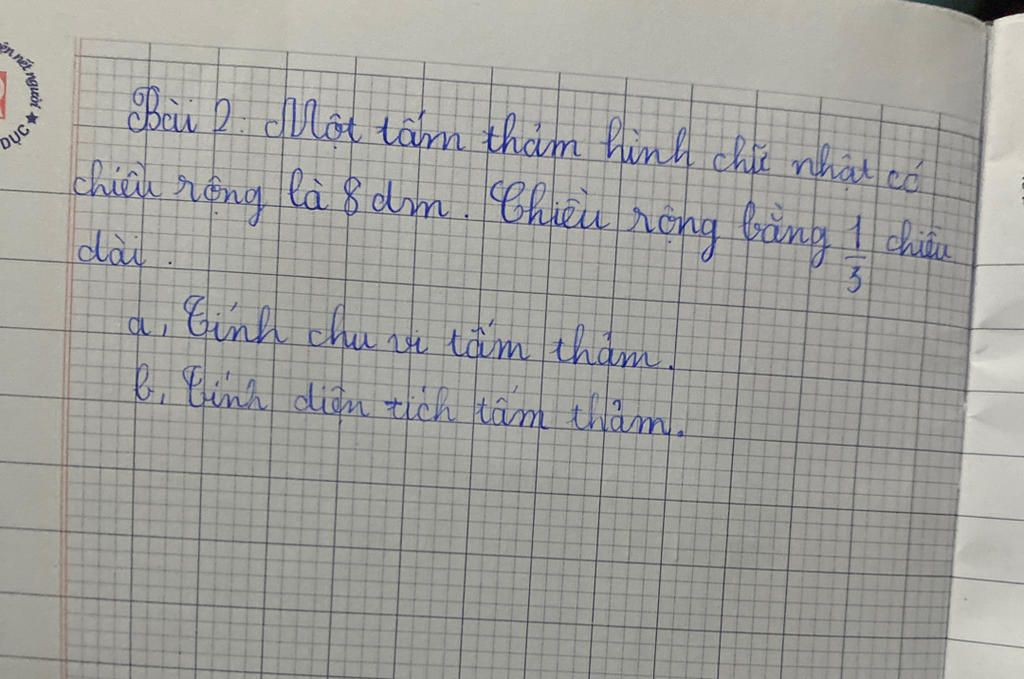 ện nết người ★
DỤC
Bài 2. Một tấm thảm hình chữ nhật có
chiều rộng là 8 dm. Chiều rộng bằng 1/3 chiều
dài.
a, Tính chu vi tấm thảm.
b, Tính diện tích tấm thảm.